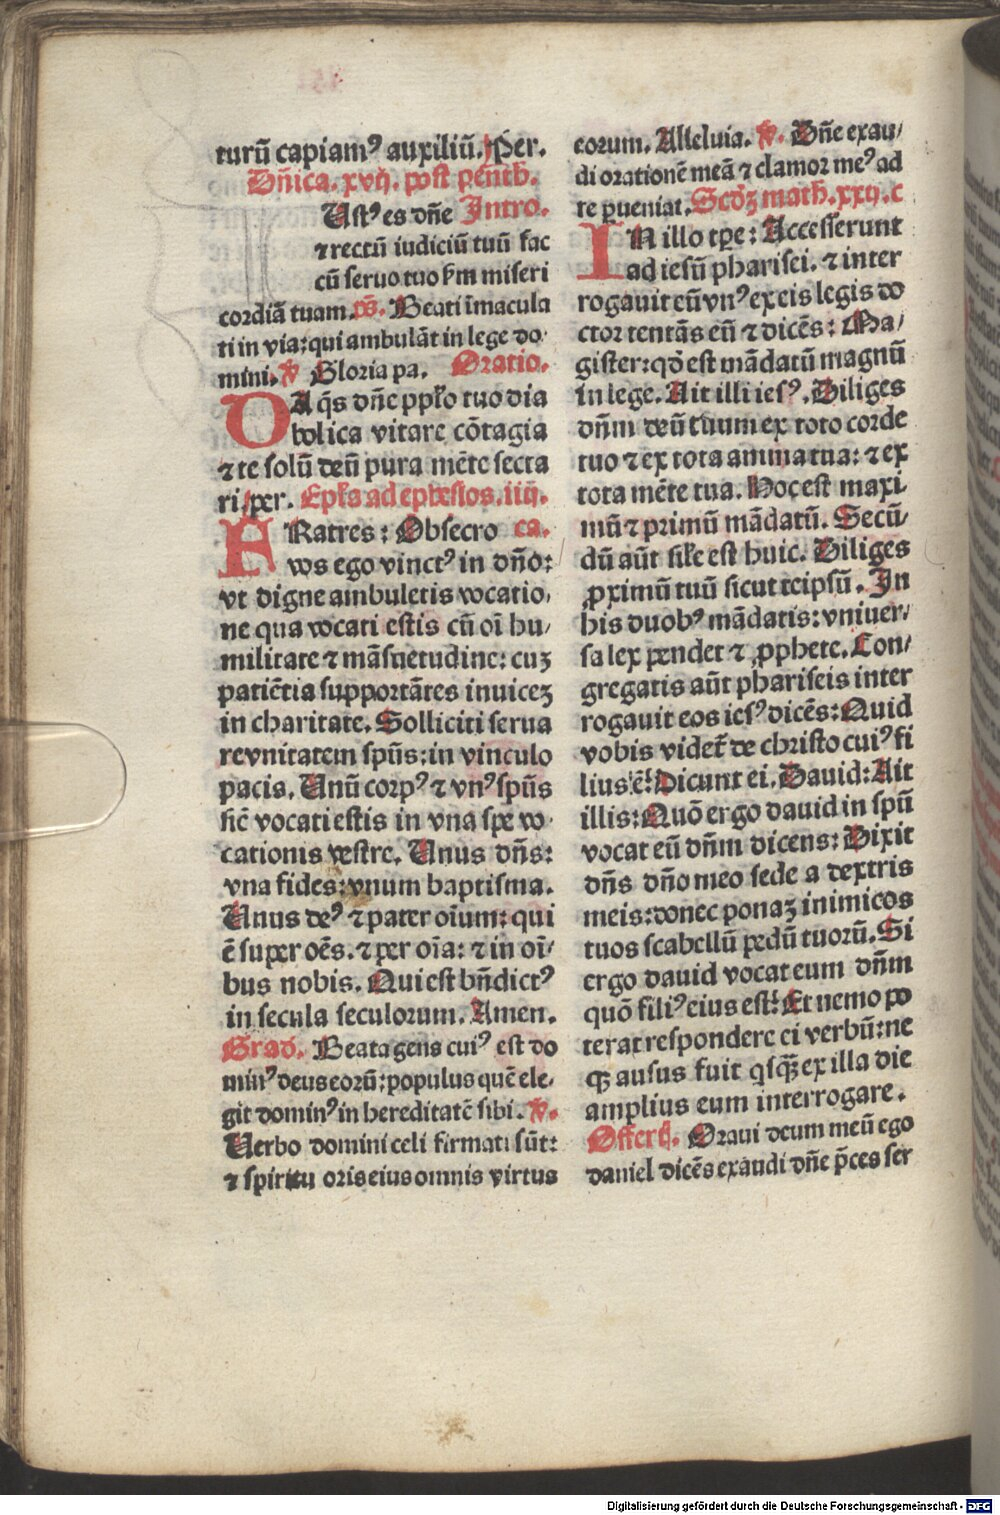 turū capiamꝰ auxiliū. Per.
Dñica. xvij. post penth̄.
Ustꝰ es dn̄e Intro.
⁊ rectū iudiciū tuū fac
cū seruo tuo ẜm miseri
cordiā tuam. ps̄. Beati īmacula
ti in via: qui ambulāt in lege do
mini. ℣ Gloria pa. Oratio.
DA q̄s dn̄e pplo tuo dia
bolica vitare cōtagia
⁊ te solū deū pura mēte secta
ri. per. Epl̄a ad ephesios. iiij.
FRatres: Obsecro ca.
vos ego vinctꝰ in dn̄o:
vt digne ambuletis vocatio/
ne qua vocati estis cū oī hu/
militate ⁊ māsuetudine: cuz
patiētia supportātes inuicez
in charitate. Solliciti serua
re vnitatem sp̄ūs: in vinculo
pacis. Unū corpꝰ ⁊ vnꝰ sp̄ūs
sic̄ vocati estis in vna spe vo
cationis vestre. Unus dn̄s:
vna fides: vnum baptisma.
Unus deꝰ ⁊ pater oīum: qui
ē super oēs. ⁊ per oīa: ⁊ in oī/
bus nobis. Qui est bn̄dictꝰ
in secula seculorum. Amen.
Grad. Beata gens cuiꝰ est do
minꝰ deus eorū: populus quē ele/
git dominꝰ in hereditatē sibi. ℣.
Uerbo domini celi firmati sūt:
⁊ spiritu oris eius omnis virtus
eorum. Alleluia. ℣. Dn̄e exau/
di orationē meā ⁊ clamor meꝰ ad
te ꝑueniat. Scd̄z math̄. xxij. c
IN illo tꝑe: Accesserunt
ad iesū pharisei. ⁊ inter
rogauit eū vnꝰ ex eis legis do
ctor tentās eū ⁊ dicēs: Ma/
gister: qd̄ est mādatū magnū
in lege. Ait illi iesꝰ. Diliges
dn̄m deū tuum ex toto corde
tuo ⁊ ex tota anima tua: ⁊ ex
tota mēte tua. Hoc est maxi
mū ⁊ primū mādatū. Secū/
dū aūt sil̄e est huic. Diliges
ꝓximū tuū sicut teipsū. In
his duobꝰ mādatis: vniuer/
sa lex pendet ⁊ ꝓphete. Con/
gregatis aūt phariseis inter
rogauit eos iesꝰ dicēs: Quid
vobis videt̄ de christo cuiꝰ fi
lius ē: Dicunt ei. Dauid: Ait
illis: Quō ergo dauid in sp̄ū
vocat eū dn̄m dicens: Dixit
dn̄s dn̄o meo sede a dextris
meis: donec ponaz inimicos
tuos scabellū pedū tuorū. Si
ergo dauid vocat eum dn̄m
quō filiꝰ eius est: Et nemo po
terat respondere ei verbū: ne
qꝫ ausus fuit qͥsqͣꝫ ex illa die
amplius eum interrogare.
Offertꝭ. Oraui deum meū ego
daniel dicēs exaudi dn̄e p̄ces ser
Digitalisierung gefördert durch die Deutsche Forschungsgemeinschaft - DFG